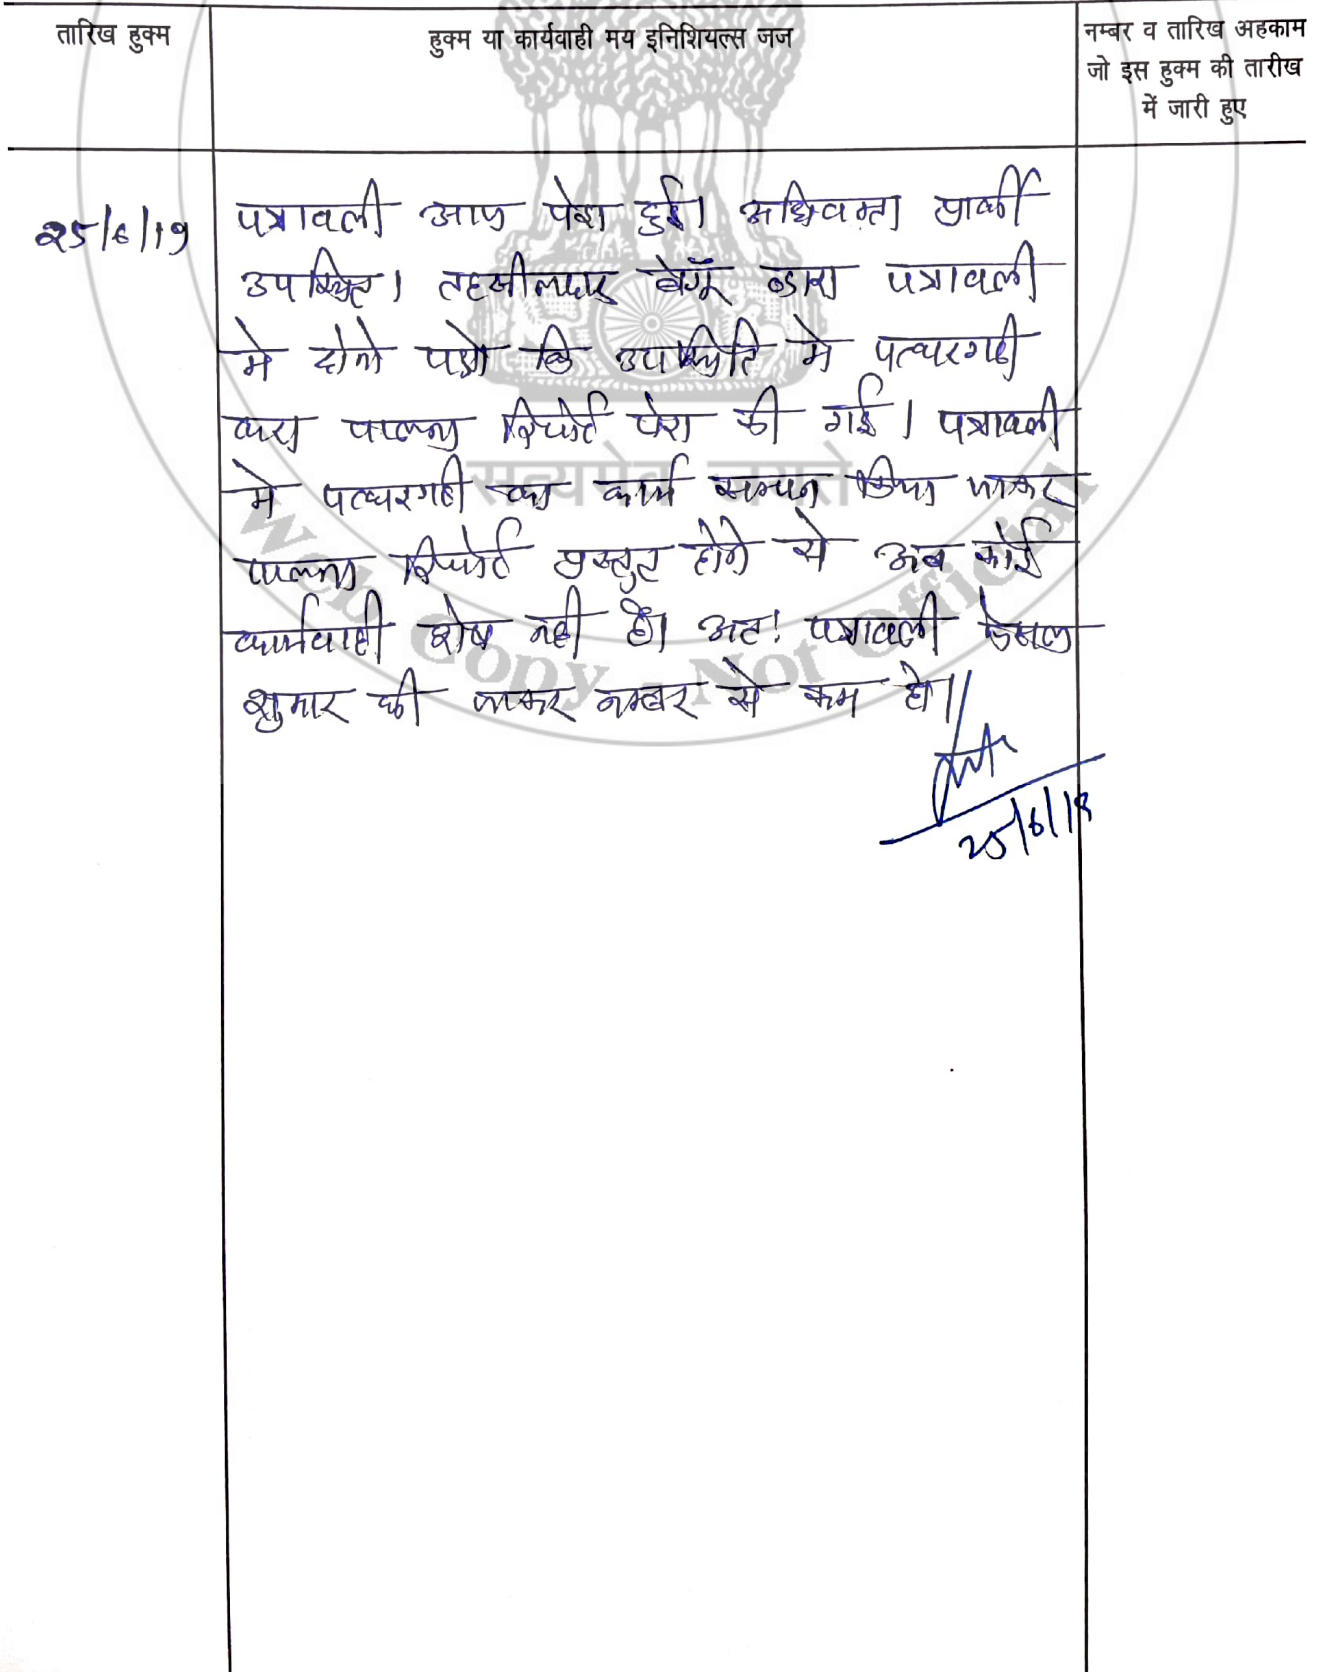 तारिख हुक्म
हुक्म या कार्यवाही मय इनिशियल्स जज
नम्बर व तारिख अहकाम
जो इस हुक्म की तारीख
में जारी हुए
25/6/19
पत्रावली आज पेश हुई। अधिवक्ता प्रार्थी
उपस्थित। तहसीलदार बेगूँ द्वारा पत्रावली
मे दोनो पक्षो कि उपस्थिति मे पत्थरगढी
करा पालना रिपोर्ट पेश की गई। पत्रावली
मे पत्थरगढी का कार्य सम्पन्न किया जाकर
पालना रिपोर्ट प्रस्तुत होने से अब कोई
कार्यवाही शेष नही है। अत: पत्रावली फेसल
शुमार की जाकर नम्बर से कम हो।
25/6/19
सत्यमेव जयते
Web Copy - Not Official